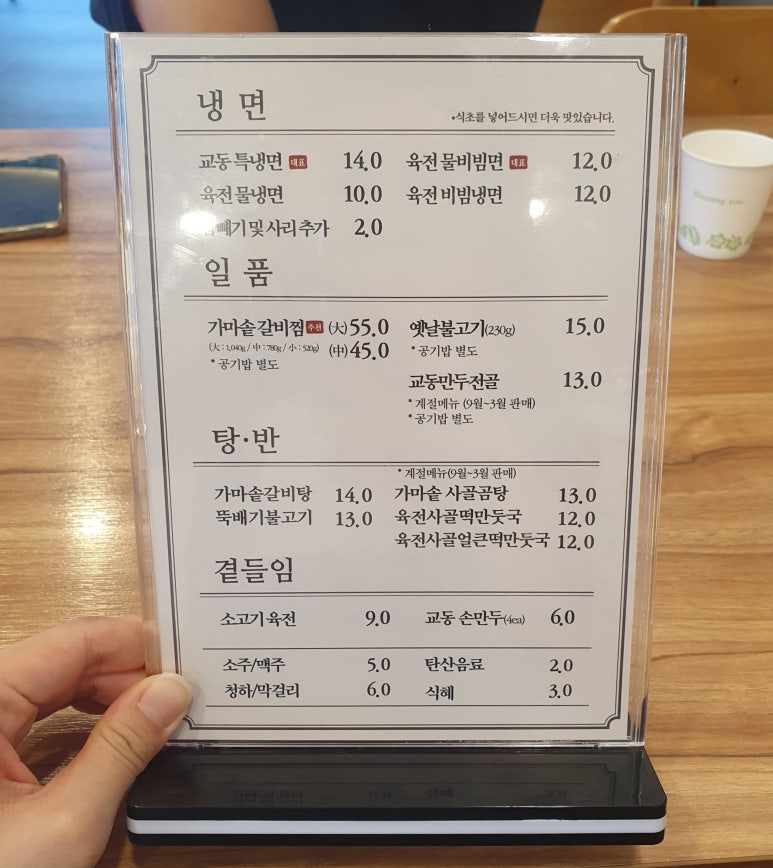 냉 면
*식초를 넣어드시면 더욱 맛있습니다.
교동 특냉면 대표 14.0
육전 물비빔면 대표 12.0
육전 물냉면 10.0
육전 비빔냉면 12.0
빼기 및 사리 추가 2.0
일 품
가마솥 갈비찜 추천 (大) 55.0
(大 : 1,040g / 中 : 780g / 小 : 520g) (中) 45.0
* 공기밥 별도
옛날불고기(230g) 15.0
* 공기밥 별도
교동만두전골 13.0
* 계절메뉴 (9월~3월 판매)
* 공기밥 별도
탕·반
* 계절메뉴(9월~3월 판매)
가마솥갈비탕 14.0
가마솥 사골곰탕 13.0
뚝배기불고기 13.0
육전사골떡만둣국 12.0
육전사골얼큰떡만둣국 12.0
곁들임
소고기 육전 9.0
교동 손만두(4ea) 6.0
소주/맥주 5.0
탄산음료 2.0
청하/막걸리 6.0
식혜 3.0
blessing you